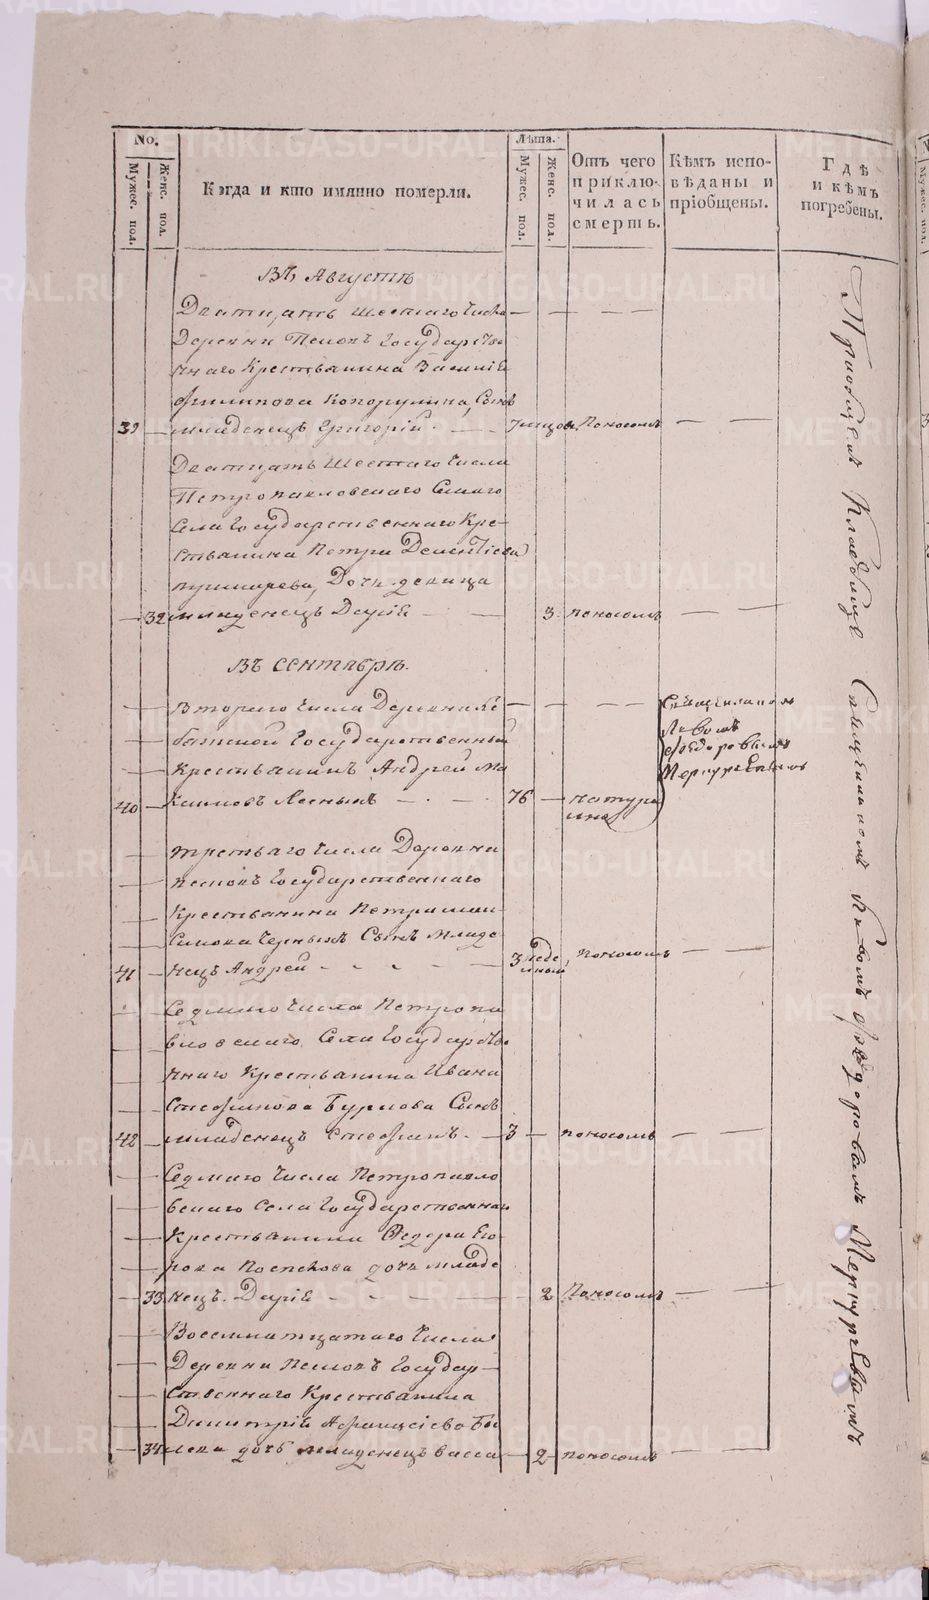 No.
Мужес. пол.
Женс. пол.
Когда и кто имянно померли.
Лѣта.
Мужес. пол.
Женс. пол.
Отъ чего
приклю-
чилась
смерть.
Кѣмъ испо-
вѣданы и
пріобщены.
Гдѣ
и кѣмъ
погребены.
Въ Августѣ
Дватцать шестаго числа
Деревни Государстве
ннаго Крестьянина Василіе
Филипова сынъ
39 младенецъ Григорій 7 поносомъ
Дватцать шестаго числа
Петропавловскаго
села Государственнаго Кре-
стьянина Петра Дементіева
Пушкарева, дочь девица
32 младенецъ Даріе 3 поносомъ
Въ сентябрѣ.
Втораго числа Деревни
Государственный
Крестьянинъ Андрей Ма
40 ксимовъ 76 натура
льно
Священникомъ
Львомъ
Федоровымъ
Меркурьевымъ
третьяго числа Деревни
Государственнаго
Крестьянина Петра
Черныхъ сынъ младе
41 нецъ Андрей 3 неде
льный поносомъ
Седмаго числа Петропа
вловскаго Села Государстве
ннаго Крестьянина Ивана
Стефанова Бурлова сынъ
42 младенецъ Стефанъ 3 поносомъ
Седмаго числа Петропавло
вскаго села Государственнаго
Крестьянина Федора Его
рова Поспелова дочь младе
33 нецъ Даріе 2 поносомъ
Восемнатцатаго числа
Деревни Государ-
ственнаго Крестьянина
Димитрій
34 дочь младенецъ Васса 2 поносомъ
Приобщемъ Кладбищѣ Священникомъ Львомъ Федоровымъ Меркурьевымъ
METRIKI.GASO-URAL.RU